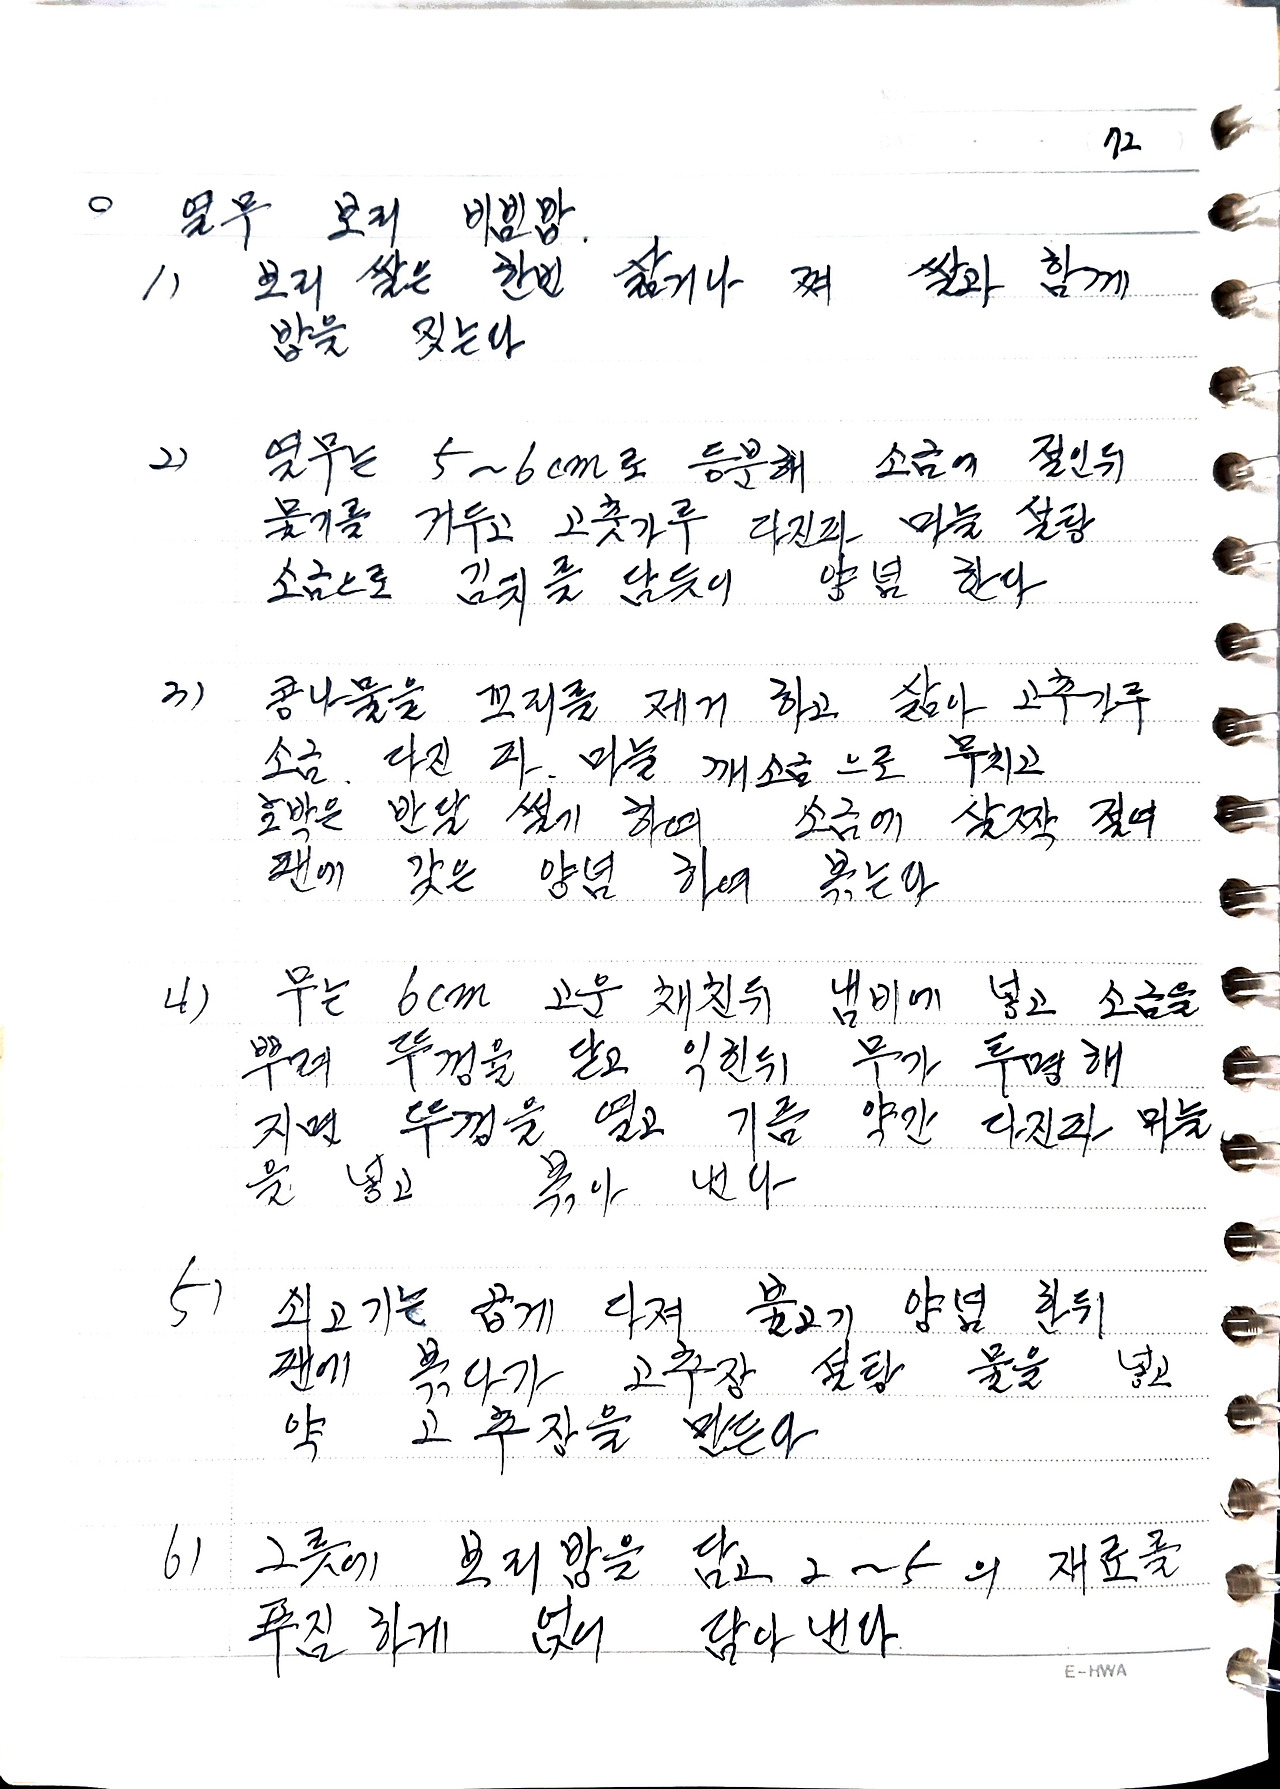 72
○ 열무 보리 비빔밥.
1) 보리 쌀은 한번 삶거나 쪄 쌀과 함께
밥을 짓는다
2) 열무는 5~6cm로 등분해 소금에 절인뒤
물기를 거두고 고춧가루 다진파 마늘 설탕
소금으로 김치를 담듯이 양념 한다
3) 콩나물을 꼬리를 제거 하고 삶아 고추가루
소금. 다진 파. 마늘 깨소금으로 무치고
호박은 반달 썰기 하여 소금에 살짝 절여
팬에 갖은 양념 하여 볶는다
4) 무는 6cm 고운 채친뒤 냄비에 넣고 소금을
뿌려 뚜껑을 닫고 익힌뒤 무가 투명해
지면 뚜껑을 열고 기름 약간 다진파 마늘
을 넣고 볶아 낸다
5) 쇠고기는 곱게 다져 불고기 양념 한뒤
팬에 볶다가 고추장 설탕 물을 넣고
약 고추장을 만든다
6) 그릇에 보리밥을 담고 2~5의 재료를
푸짐하게 얹어 담아 낸다
E-HWA